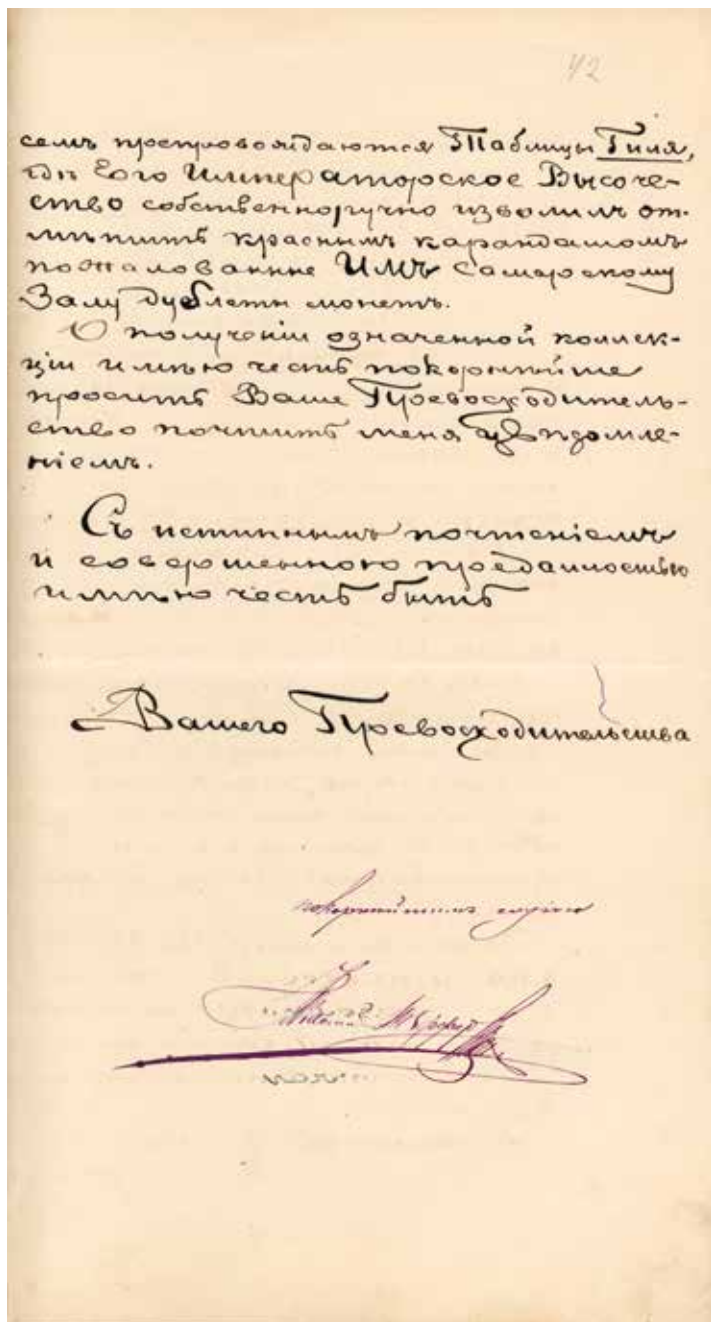 42
семъ препровождаются Таблицы Гиля,
гдѣ Его Императорское Высоче-
ство собственноручно изволилъ от-
мѣтить краснымъ карандашомъ
пожалованные ИМЪ Самарскому
Залу дублеты монетъ.
О полученіи означенной коллек-
ціи имѣю честь покорнѣйше
просить Ваше Превосходитель-
ство почтить меня увѣдомле-
ніемъ.
Съ истиннымъ почтеніемъ
и совершенною преданностью
имѣю честь быть
Вашего Превосходительства
покорнѣйшимъ слугою